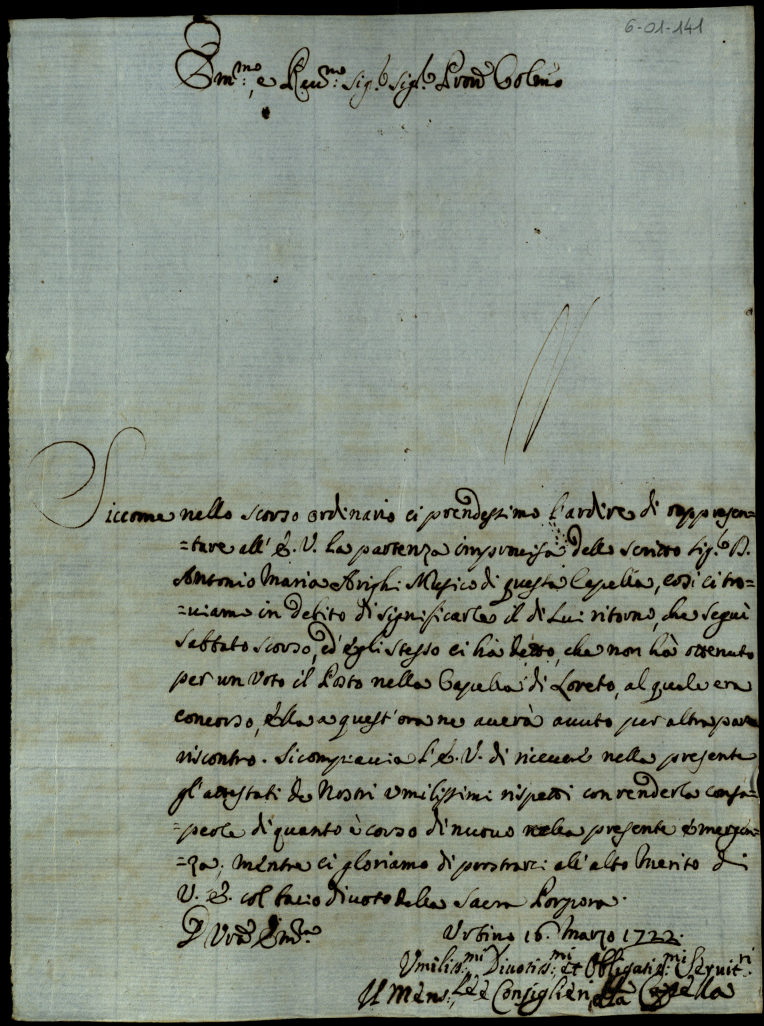 6-01-141
Em.mo e Rev.mo Sig.r Sig.r Pron.e Col.mo
Siccome nello scorso ordinario ci prendessimo l'ardire di rappresen=
=tare all'E.V. la partenza improvisa dello scritto Sig.r D.
Antonio Maria Arighi Musico di questa Capella, così ci tro=
=uiamo in debito di significarle il di Lui ritorno, che seguì
Sabbato scorso, ed egli stesso ci hà detto, che non hà ottenuto
per un Voto il Posto nella Capella di Loreto, al quale era
concorso, Ella a quest'ora ne auerà auuto per altra parte
riscontro. Si compiaccia l'E.V. di riceuere nella presente
gl'attestati de Nostri umilissimi rispetti con renderla consa=
=peole di quanto è corso di nuouo nella presente emergen=
=za, mentre ci gloriamo di prostrarci all'alto Merito di
V.E. col bacio diuoto della Sacra Porpora.
D V.ra Em.za
Urbino 16. Marzo 1722.
Umiliss.mi Diuotiss.mi et Obligatis.mi Seruit.ri
Il Mens.le e Consiglieri della Capella